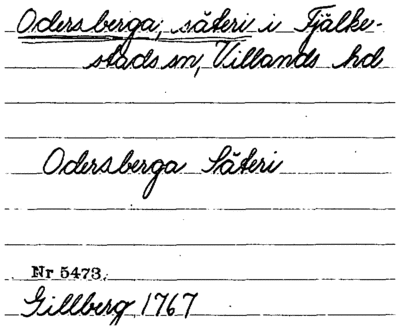 Odersberga, säteri i Fjälke-
stads sn, Villands hd
Odersberga Säteri
Nr 5473.
Gillberg 1767